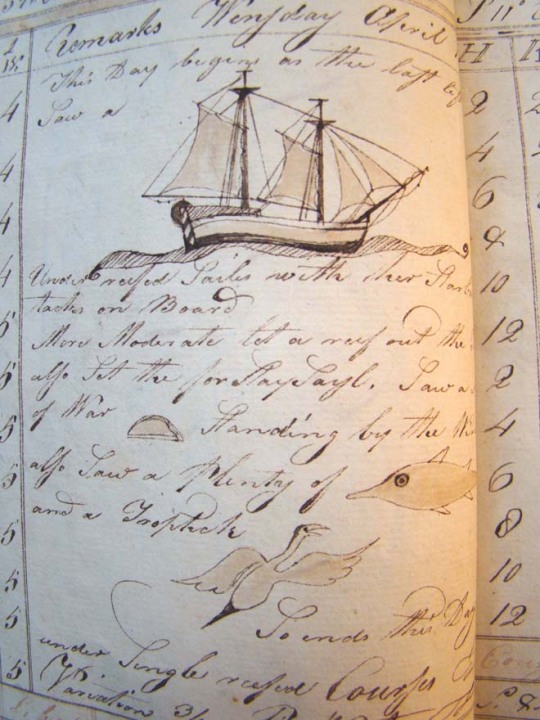 Remarks Wensday April
H
This Day begins as the last
Saw a
Under reefed Sails with her
tacks on Board
More Moderate let a reef out the
also Set the forStaySayl. Saw a
of War Standing by the
also Saw a Plenty of
and a Tropick
So ends this Day
under Single reefed Courses
Variation
4
4
4
4
5
5
5
5
5
5
5
2
4
6
8
10
12
2
4
6
8
10
12